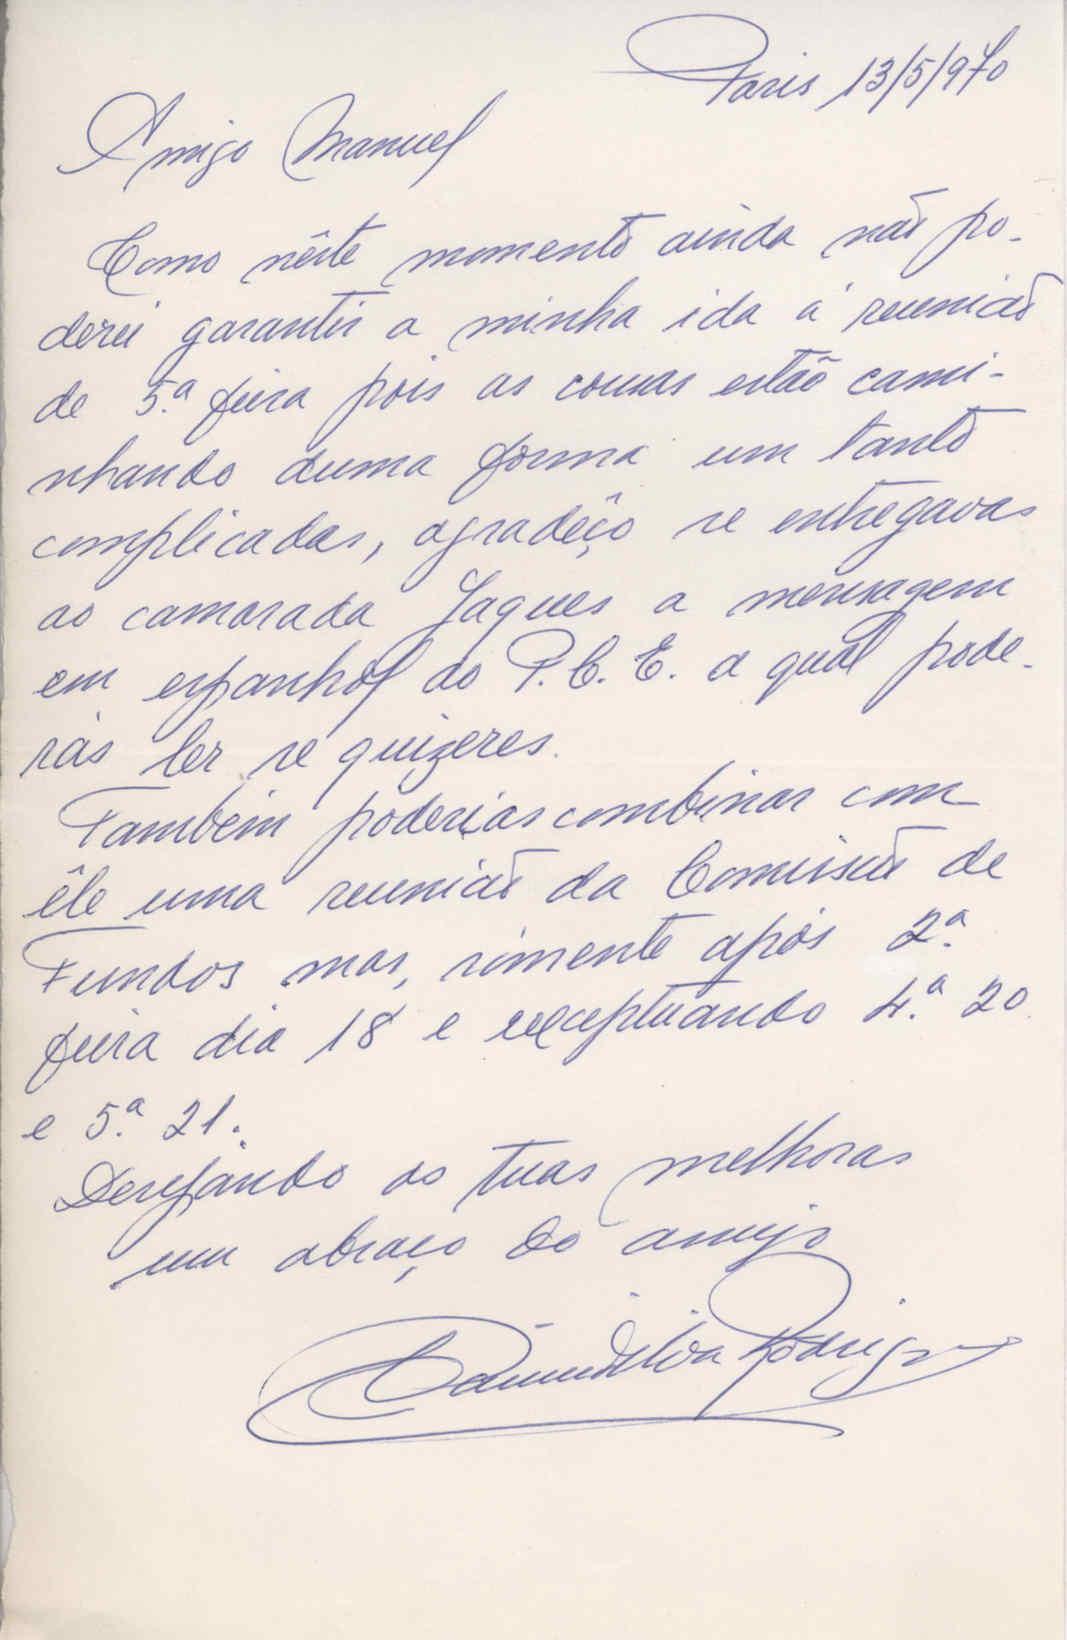 Paris 13/5/970
Amigo Manuel
Como nêste momento ainda não po-
derei garantir a minha ida á reunião
de 5.ª feira pois as cousas estão cami-
nhando duma forma um tanto
complicadas, agradeço se entregavas
ao camarada Jaques a mensagem
em espanhol do P.C.E. a qual pode-
rás ler se quizeres.
Também poderias combinar com
êle uma reunião da Comissão de
Fundos mas, sómente após 2ª.
feira dia 18 e exceptuando 4.ª 20
e 5.ª 21.
Desejando as tuas melhoras
um abraço do amigo
Rodrigues